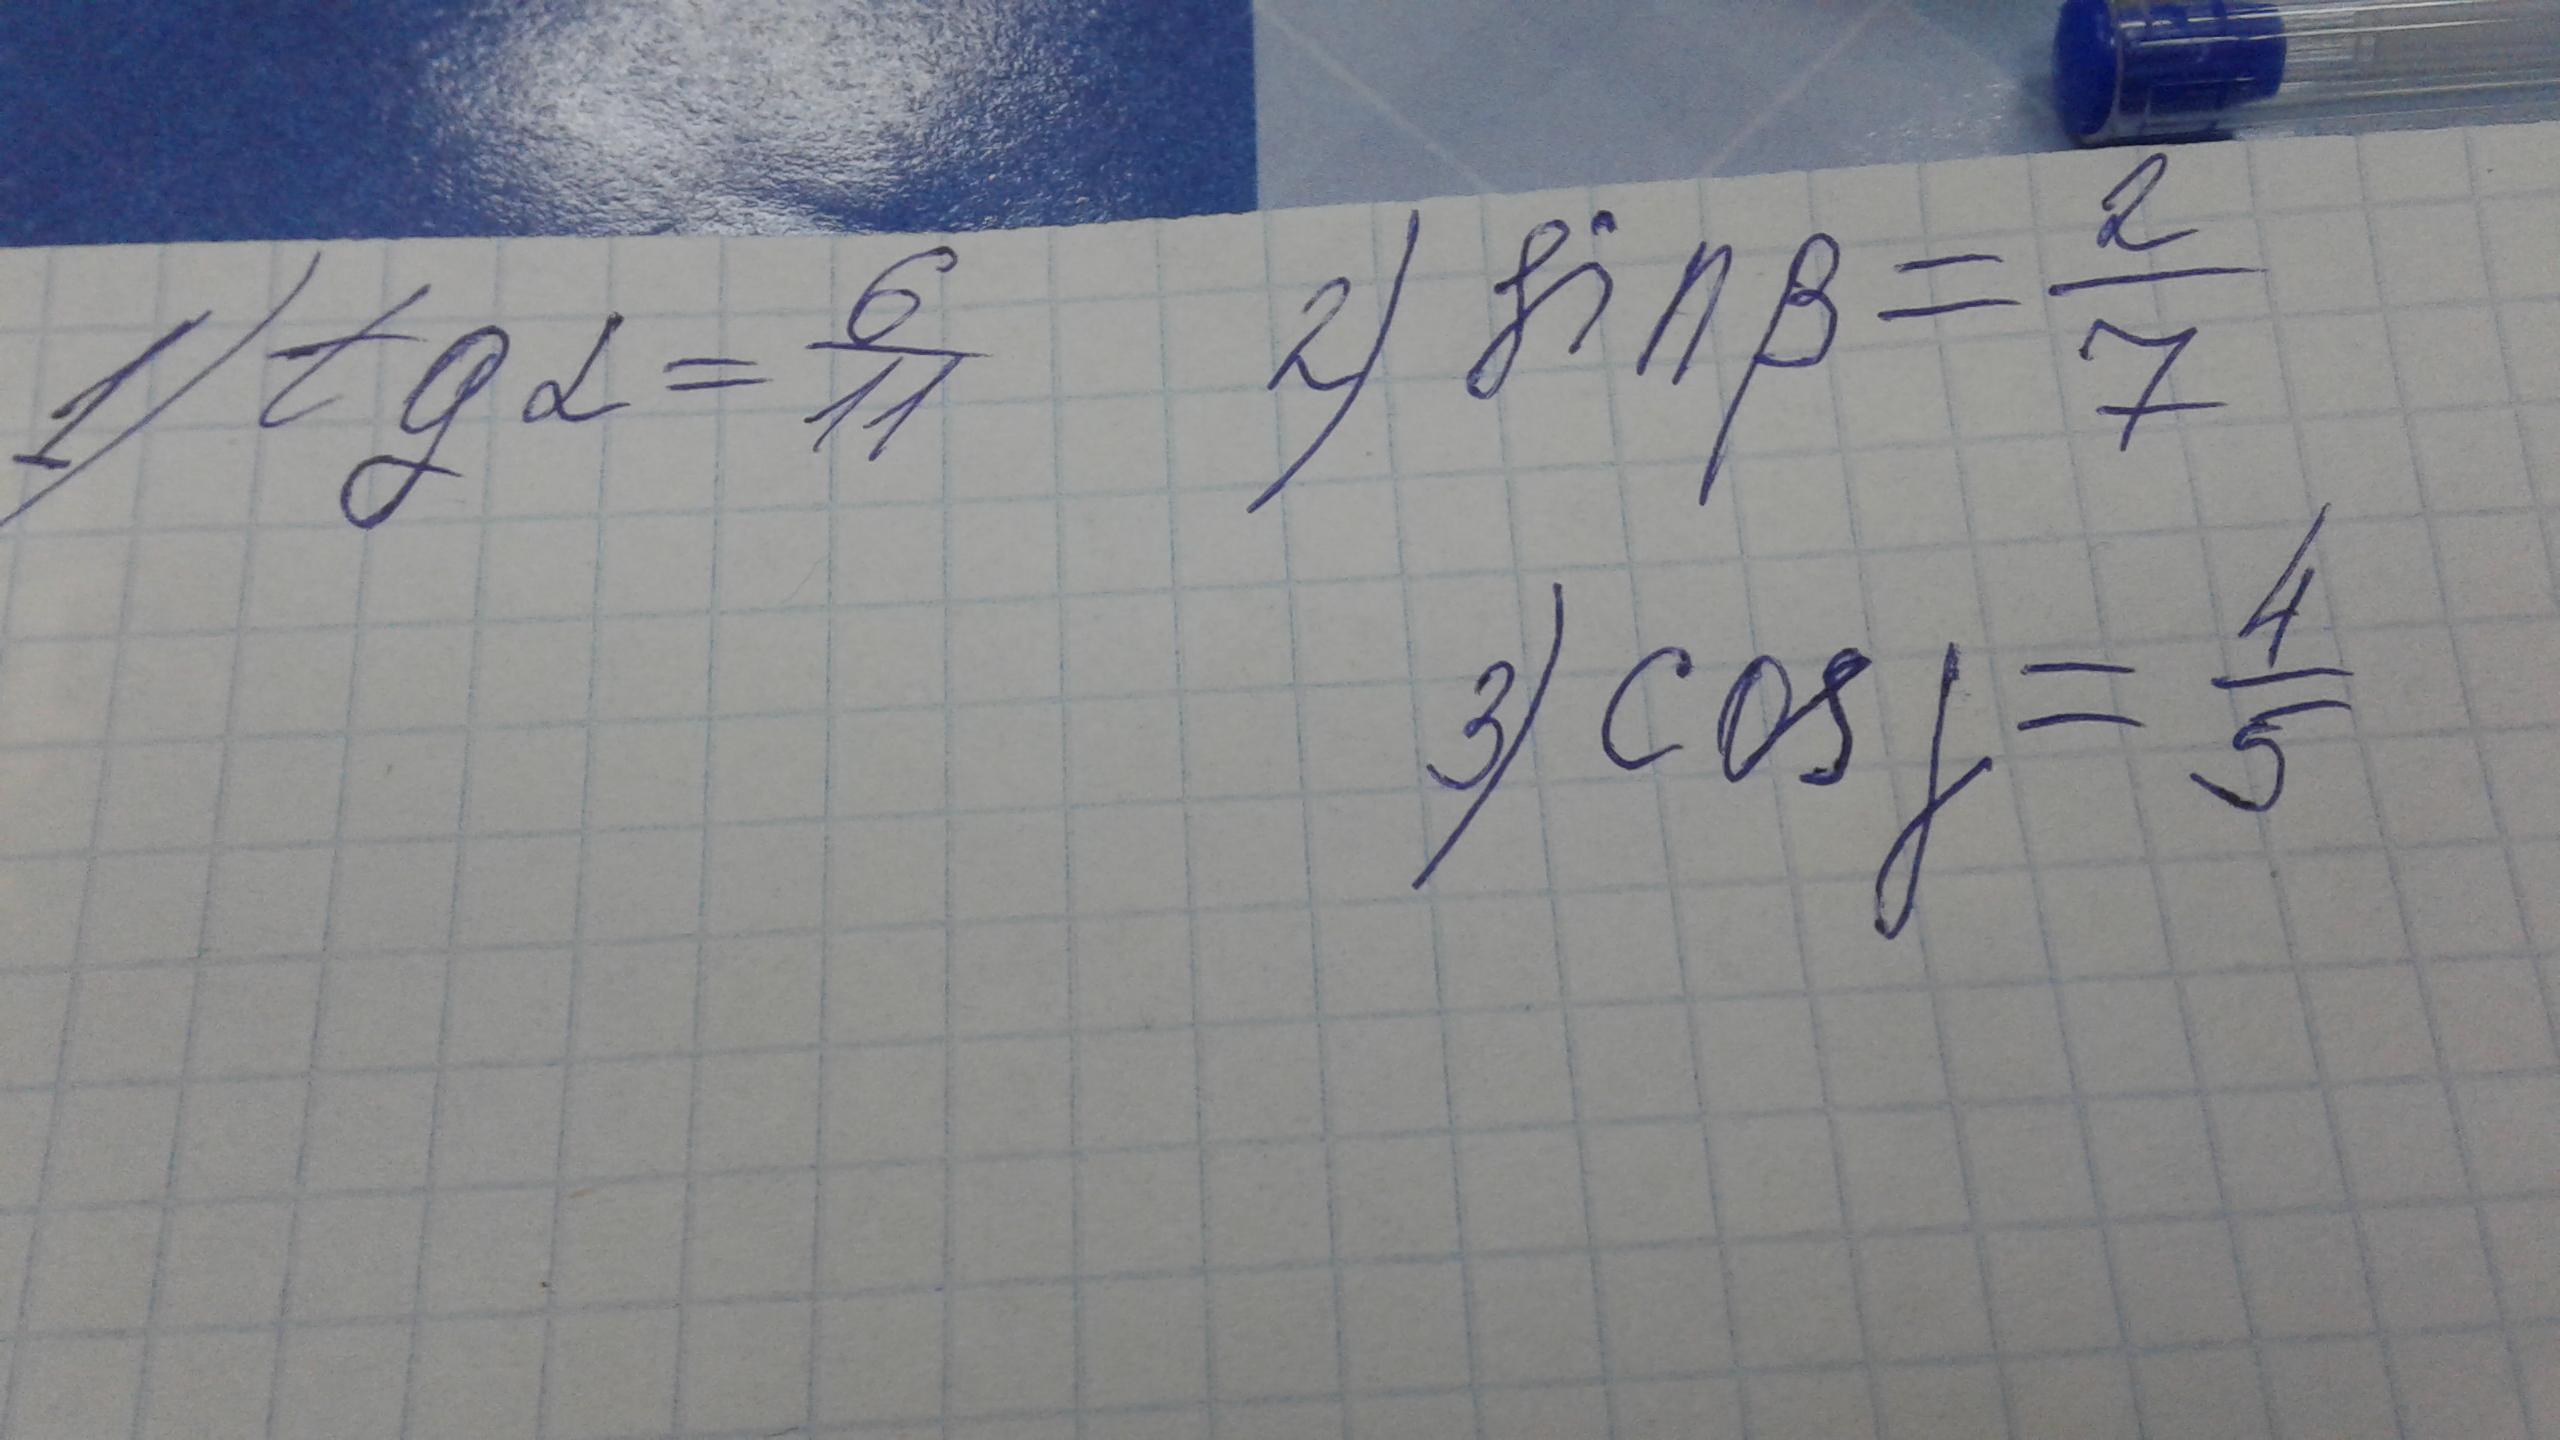 1) tg α = 6/11
2) sin β = 2/7
3) cos γ = 4/5